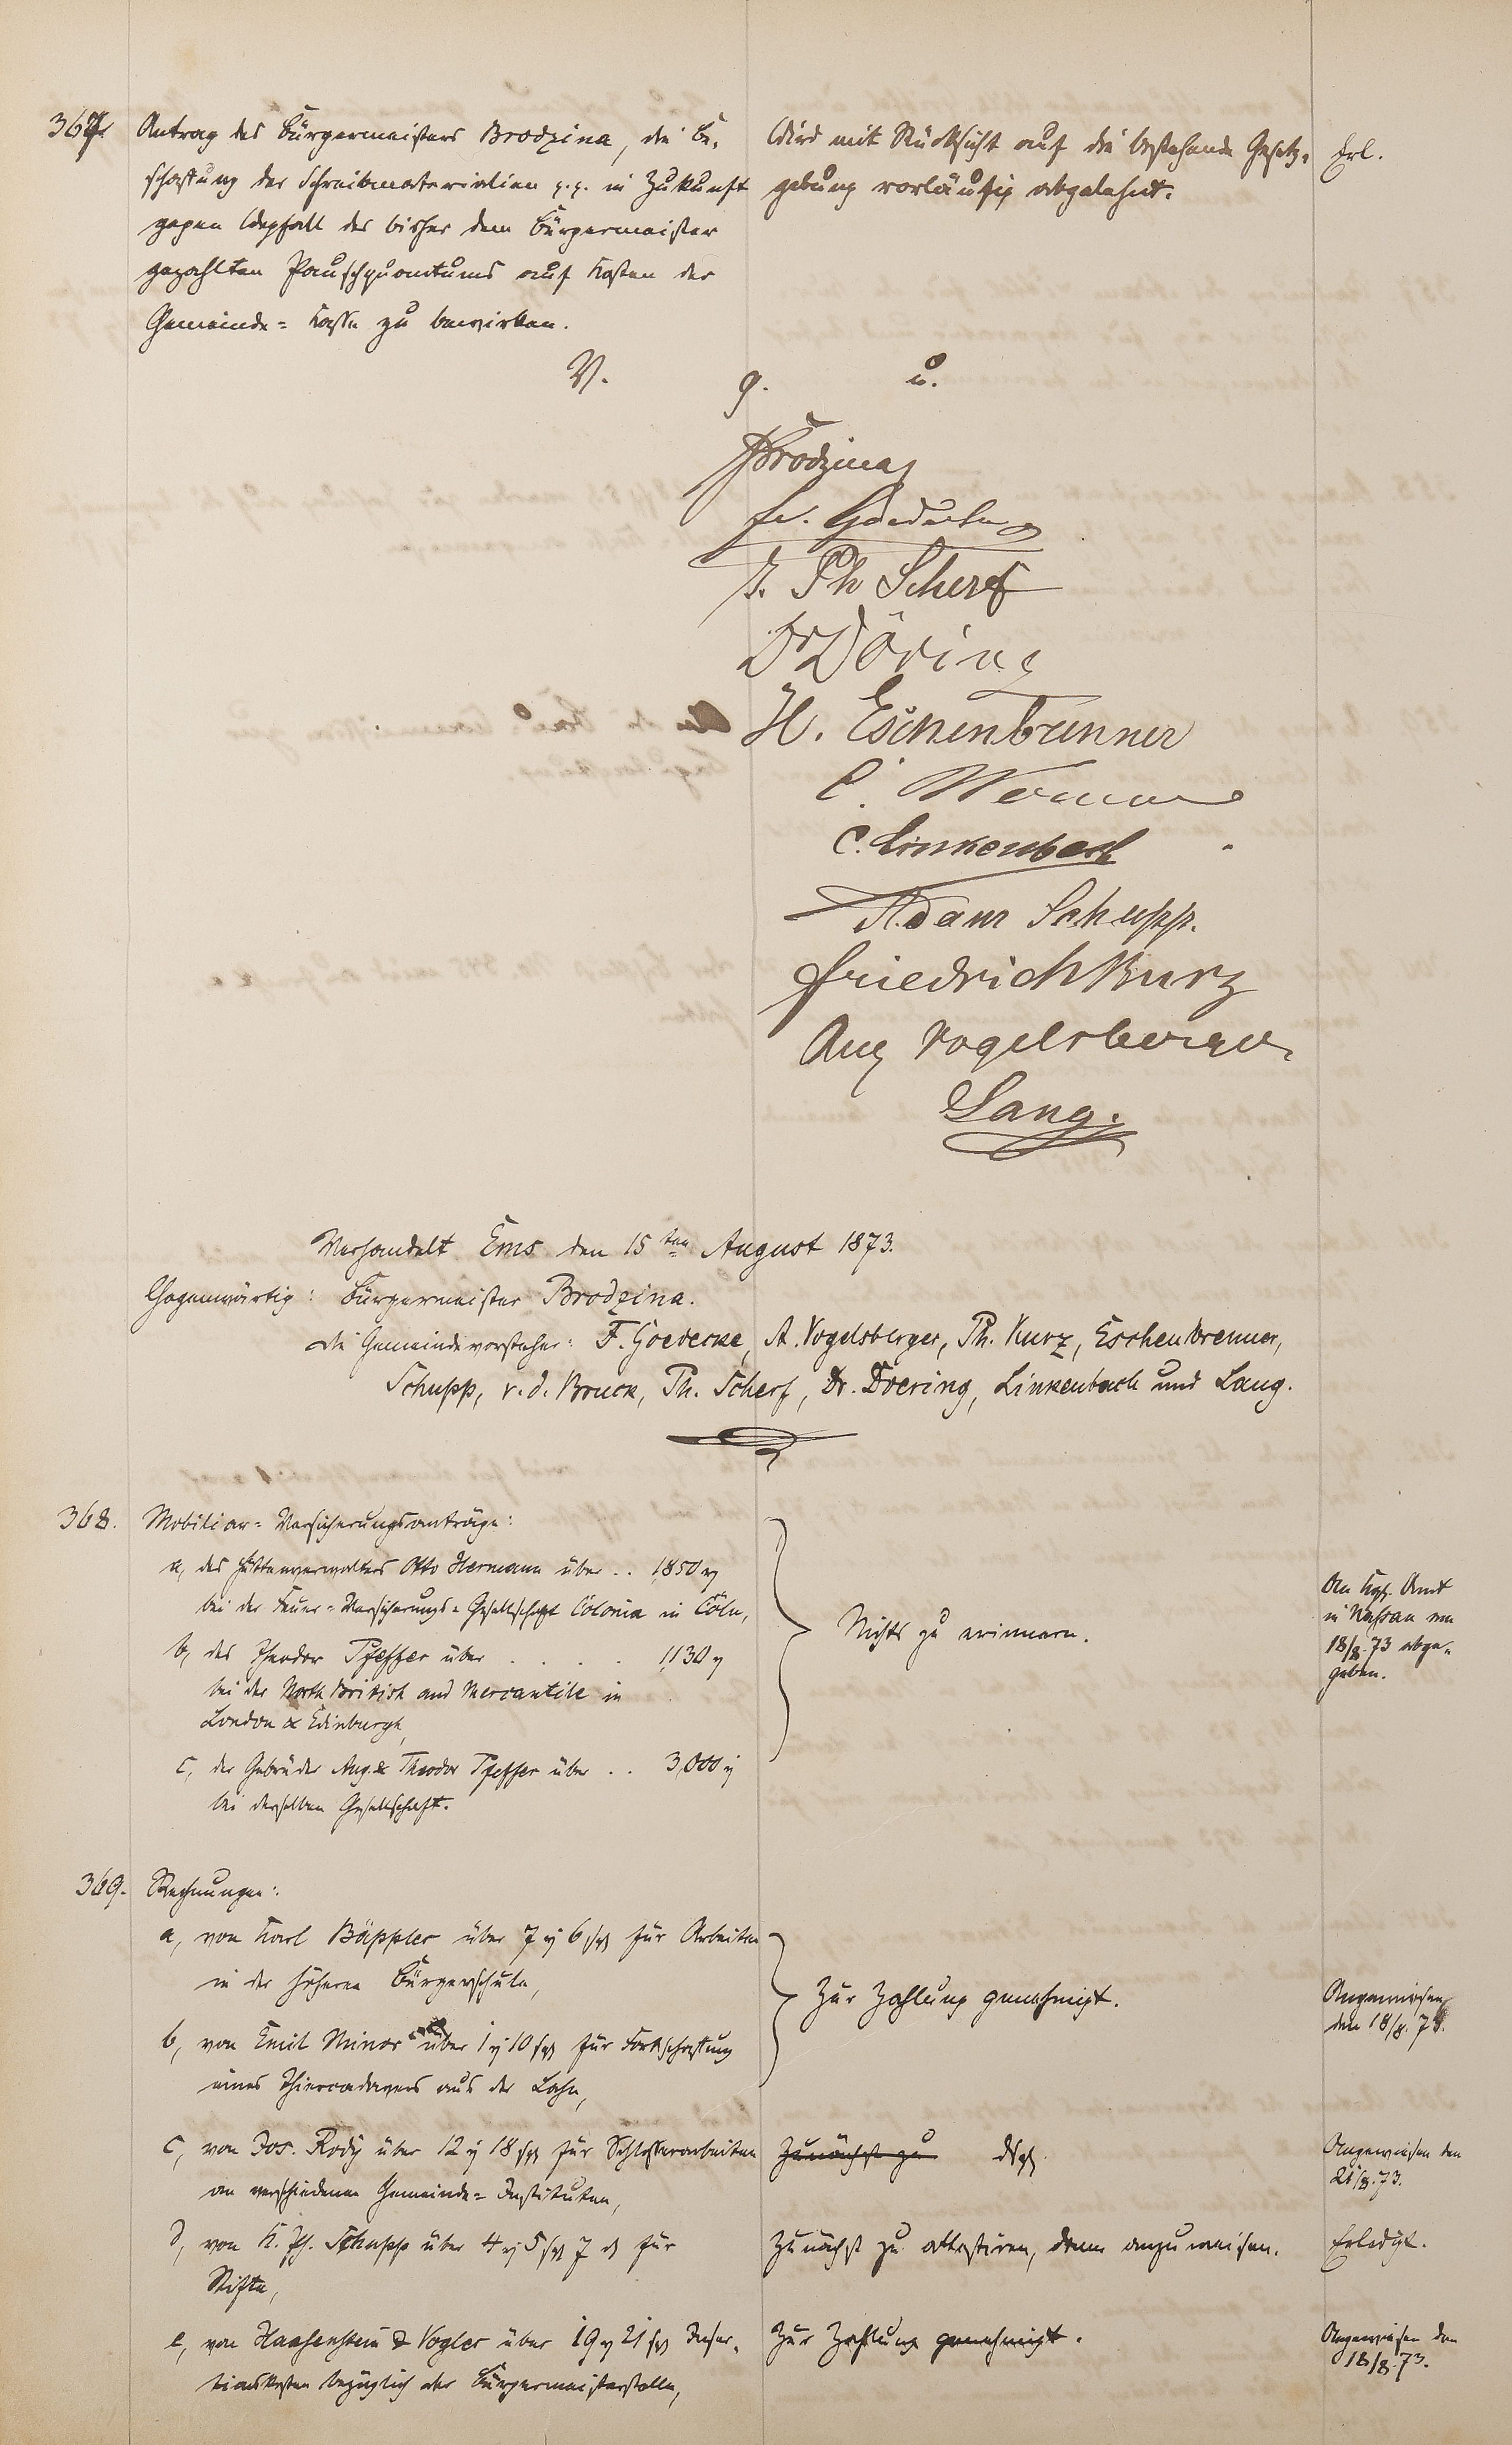 367. Antrag des Bürgermeisters Brodzina, die Be-
schaffung der Schreibmaterialien p.p. in Zukunft
gegen Wegfall des bisher dem Bürgermeister
gezahlten Pauschquantums auf Kosten der
Gemeinde-Kasse zu bewirken.
Wird mit Rücksicht auf die bestehende Gesetz-
gebung vorläufig abgelehnt.
Erl.
V. g. u.
Brodzina
Fr. Goedecke
J. Ph Scherf
Dr Döring
H. Eschenbrenner
C.
C. Linkenbach
Adam Schupp.
Friedrich Kurz
Aug Vogelsberger
Lang.
Verhandelt Ems den 15ten August 1873.
Gegenwärtig: Bürgermeister Brodzina.
die Gemeindevorsteher: F. Goedecke, A. Vogelsberger, Ph. Kurz, Eschenbrenner,
Schupp, v. d. Bruck, Ph. Scherf, Dr. Doering, Linkenbach und Lang.
368. Mobiliar-Versicherungsanträge:
a, des Hüttenverwalters Otto Hermann über .. 1850
bei der Feuer-Versicherungs-Gesellschaft Colonia in Cöln,
b, des Theodor Pfeffer über . . . . 1130
bei der North British and Mercantile in
London & Edinburgh,
c, der Gebrüder Aug. & Theodor Pfeffer über .. 3,000
bei derselben Gesellschaft.
Nichts zu erinnern.
An Kgl. Amt
in Nassau am
18/8.73 abge-
geben.
369. Rechnungen:
a, von Karl Bäppler über 7 6 für Arbeiten
in der höheren Bürgerschule,
b, von Emil Minor über 1 10 für Fortschaffung
eines Thiercadavers aus der Lahn,
Zur Zahlung genehmigt.
Angewiesen
den 18/8. 73.
c, von Jos. Rody über 12 18 für Schlosserarbeiten
an verschiedenen Gemeinde-Instituten,
Zunächst zu dsgl.
Angewiesen den
21/8.73.
d, von K. Ph. Schupp über 4 5 7 für
Stifte,
Zunächst zu attestiren, dann anzuweisen.
Erledigt.
e, von Haasenstein & Vogler über 19 21 Inser-
tionskosten bezüglich der Bürgermeisterstelle,
Zur Zahlung genehmigt.
Angewiesen den
18/8.73.